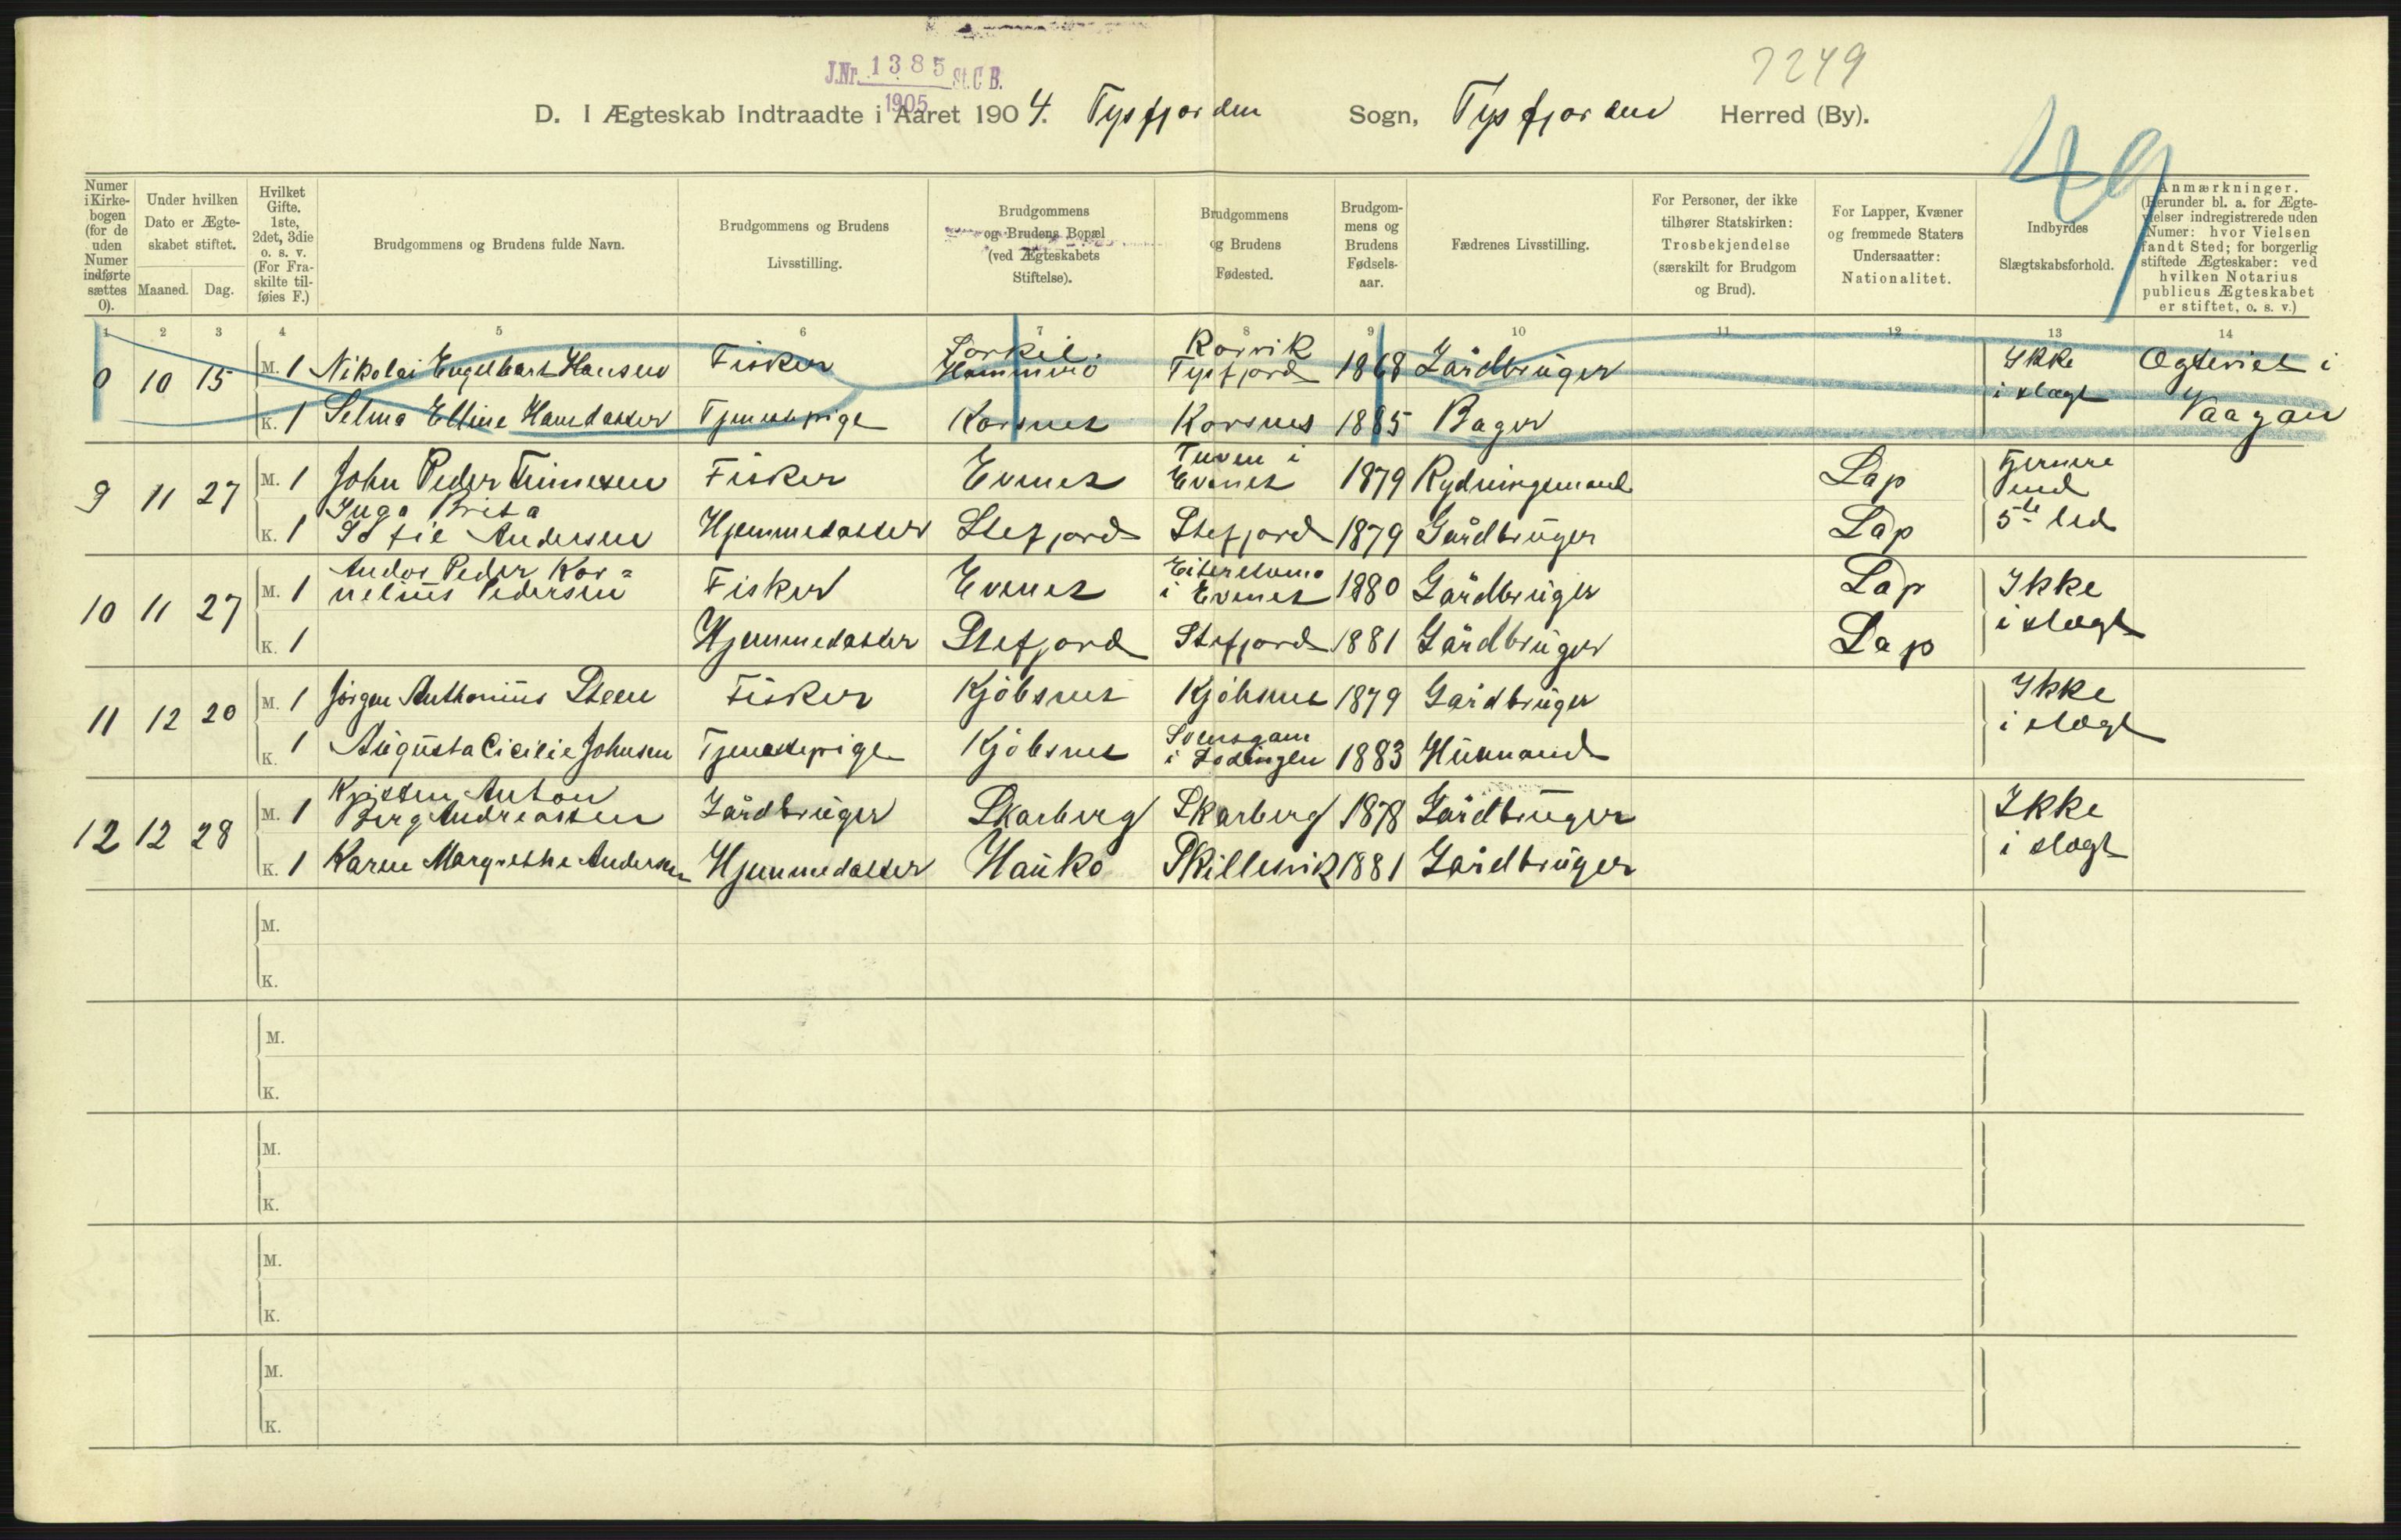 7249
J.Nr. 1385 St.C.B.
1905
D. I Ægteskab Indtraadte i Aaret 1904. Tysfjorden Sogn, Tysfjorden Herred (By).
49
Numer i Kirkebogen (for de uden Numer indførte sættes 0).
Under hvilken Dato er Ægteskabet stiftet.
Maaned. Dag.
Hvilket Gifte. 1ste, 2det, 3die o. s. v. (For Fraskilte tilføies F.)
Brudgommens og Brudens fulde Navn.
Brudgommens og Brudens Livsstilling.
Brudgommens og Brudens Bopæl (ved Ægteskabets Stiftelse).
Brudgommens og Brudens Fødested.
Brudgommens og Brudens Fødselsaar.
Fædrenes Livsstilling.
For Personer, der ikke tilhører Statskirken: Trosbekjendelse (særskilt for Brudgom og Brud).
For Lapper, Kvæner og fremmede Staters Undersaatter: Nationalitet.
Indbyrdes Slægtskabsforhold.
Anmærkninger. (Herunder bl. a. for Ægtevielser indregistrerede uden Numer: hvor Vielsen fandt Sted; for borgerlig stiftede Ægteskaber: ved hvilken Notarius publicus Ægteskabet er stiftet, o. s. v.)
1 2 3 4 5 6 7 8 9 10 11 12 13 14
0 10 15 M. 1 Nikolai Engelbart Hansen Fisker Korvik Tysfjord 1868 Gårdbruger Ikke i slægt Ægteviet i Vaagan
K. 1 Selma Elline Hansdatter Tjenestepige Korsnes Korsnes 1885 Bager
9 11 27 M. 1 John Peder Fisker Evenes i Evenes 1879 Rydningsmand Lap Fjernere end 5te led
K. 1 Inga Brita Sofie Andersen Hjemmedatter Stefjord Stefjord 1879 Gårdbruger Lap
10 11 27 M. 1 Andor Peder Kornelius Pedersen Fisker Evenes i Evenes 1880 Gårdbruger Lap Ikke i slægt
K. 1 Hjemmedatter Stefjord Stefjord 1881 Gårdbruger Lap
11 12 20 M. 1 Jörgen Anthonius Steen Fisker Kjöbsnes Kjöbsnes 1879 Gårdbruger Ikke i slægt
K. 1 Augusta Cicilie Johnsen Tjenestepige Kjöbsnes i Lødingen 1883 Husmand
12 12 28 M. 1 Kristen Anton Berg Andreassen Gårdbruger Skarberg Skarberg 1878 Gårdbruger Ikke i slægt
K. 1 Karen Margrethe Andersen Hjemmedatter Haukø Skillevik 1881 Gårdbruger
M.
K.
M.
K.
M.
K.
M.
K.
M.
K.